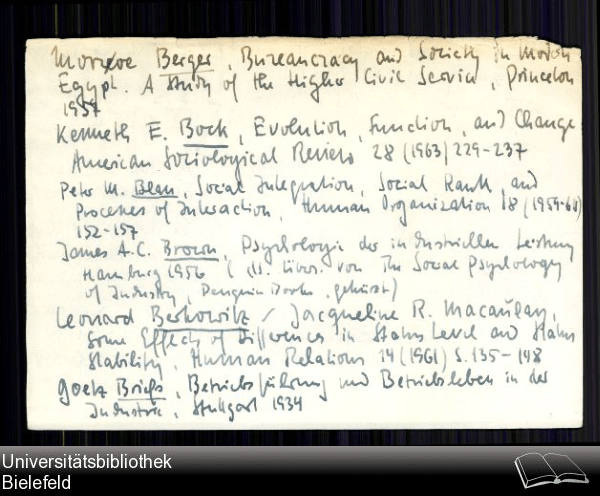 Monroe Berger, Bureaucracy and Society in Modern
Egypt. A Study of the Higher Civil Service, Princeton
1957
Kenneth E. Bock, Evolution, Function, and Change
American Sociological Review 28 (1963) 229-237
Peter M. Blau, Social Integration, Social Rank, and
Processes of Interaction, Human Organization 18 (1959-60)
152-157
James A.C. Brown, Psychologie der industriellen Leistung
Hamburg 1956 (dt. Übers. von The Social Psychology
of Industry, Penguin Books, gekürzt)
Leonard Berkowitz / Jacqueline R. Macaulay,
Some Effects of Differences in Status Level and Status
Stability, Human Relations 14 (1961) S. 135-148
Goetz Briefs, Betriebsführung und Betriebsleben in der
Industrie, Stuttgart 1934
Universitätsbibliothek
Bielefeld